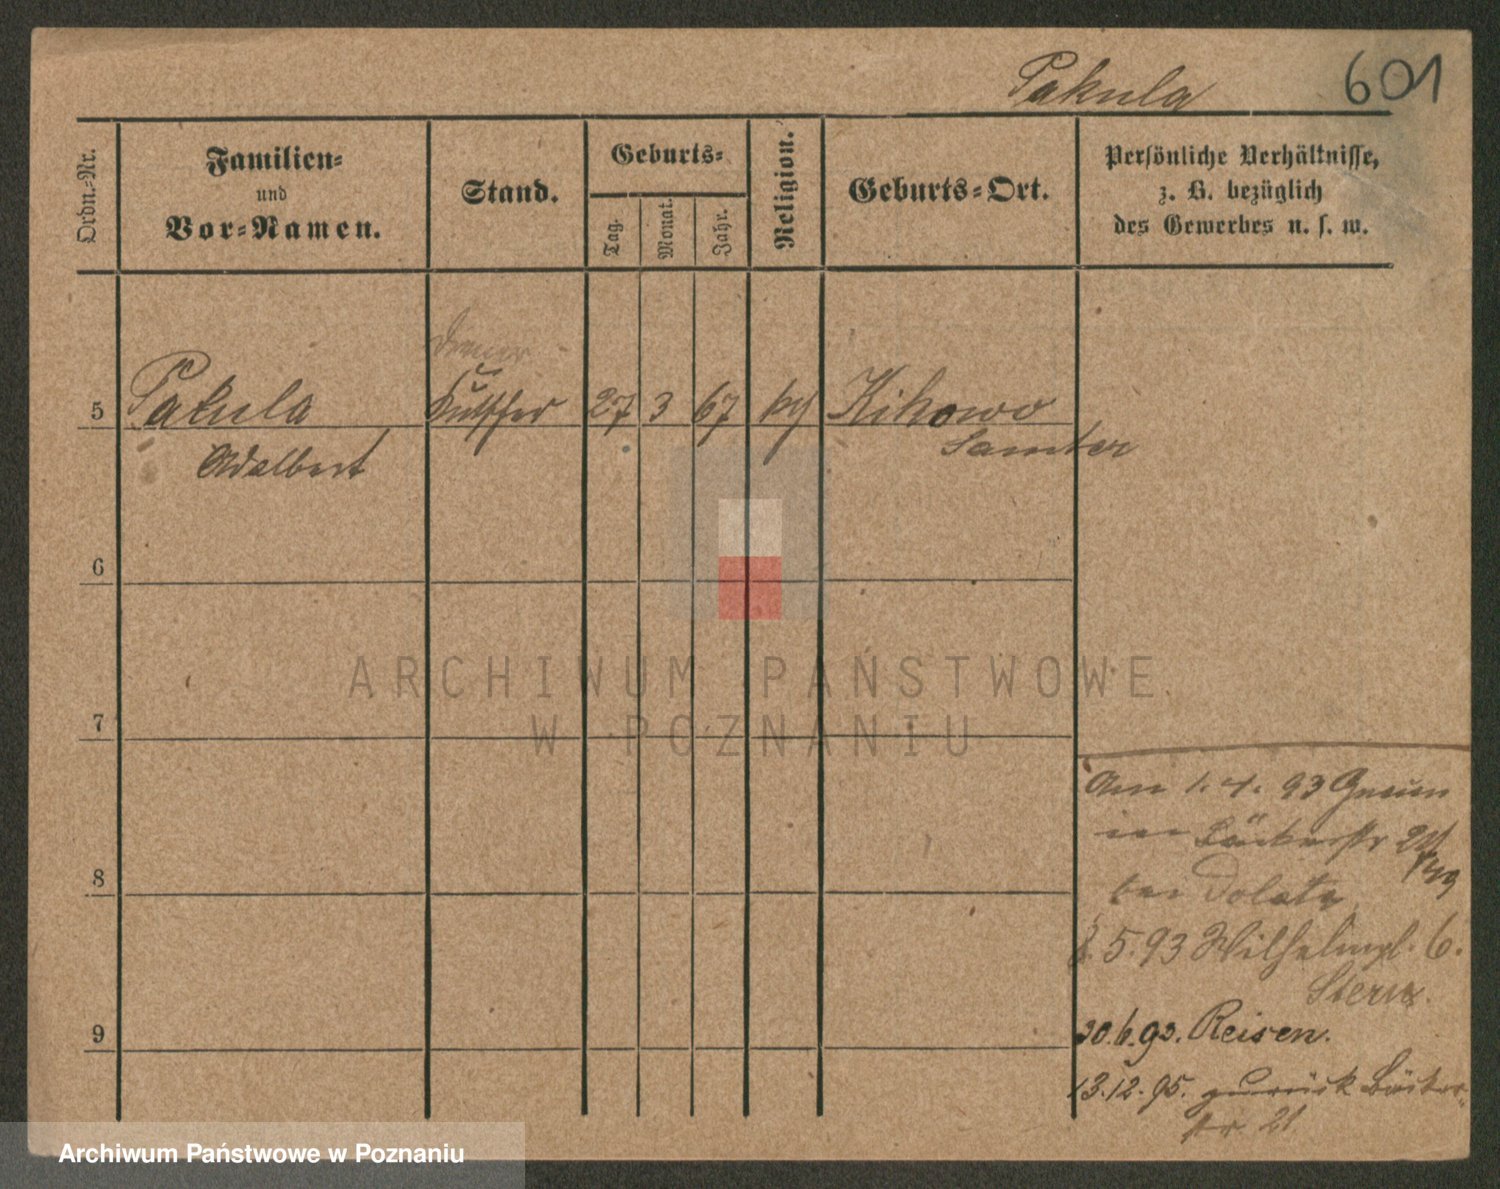 Pakula
601
Ordn.-Nr.
Familien-
und
Vor-Namen.
Stand.
Geburts-
Tag.
Monat.
Jahr.
Religion.
Geburts-Ort.
Persönliche Verhältnisse,
z. B. bezüglich
des Gewerbes u. s. w.
Diener
5 Pakula Kutscher 27 3 67 kg Kikowo
Adalbert Samter
6
7
8
9
Am 1. 4. 93
Bäckerstr
bei Dolata
5. 93 Wilhelmpl. 6.
Stern.
30. 6. 93. Reisen.
13. 12. 95. zurück Bäcker-
str. 21
ARCHIWUM PAŃSTWOWE
W POZNANIU
Archiwum Państwowe w Poznaniu